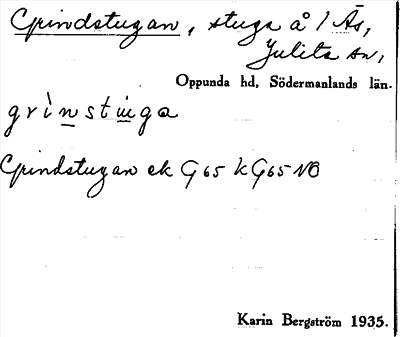 Grindstugan, stuga å 1 Ås,
Julita sn,
Oppunda hd, Södermanlands län.
grìnstu̇ga
Grindstugan ek G65 kG65 NO
Karin Bergström 1935.